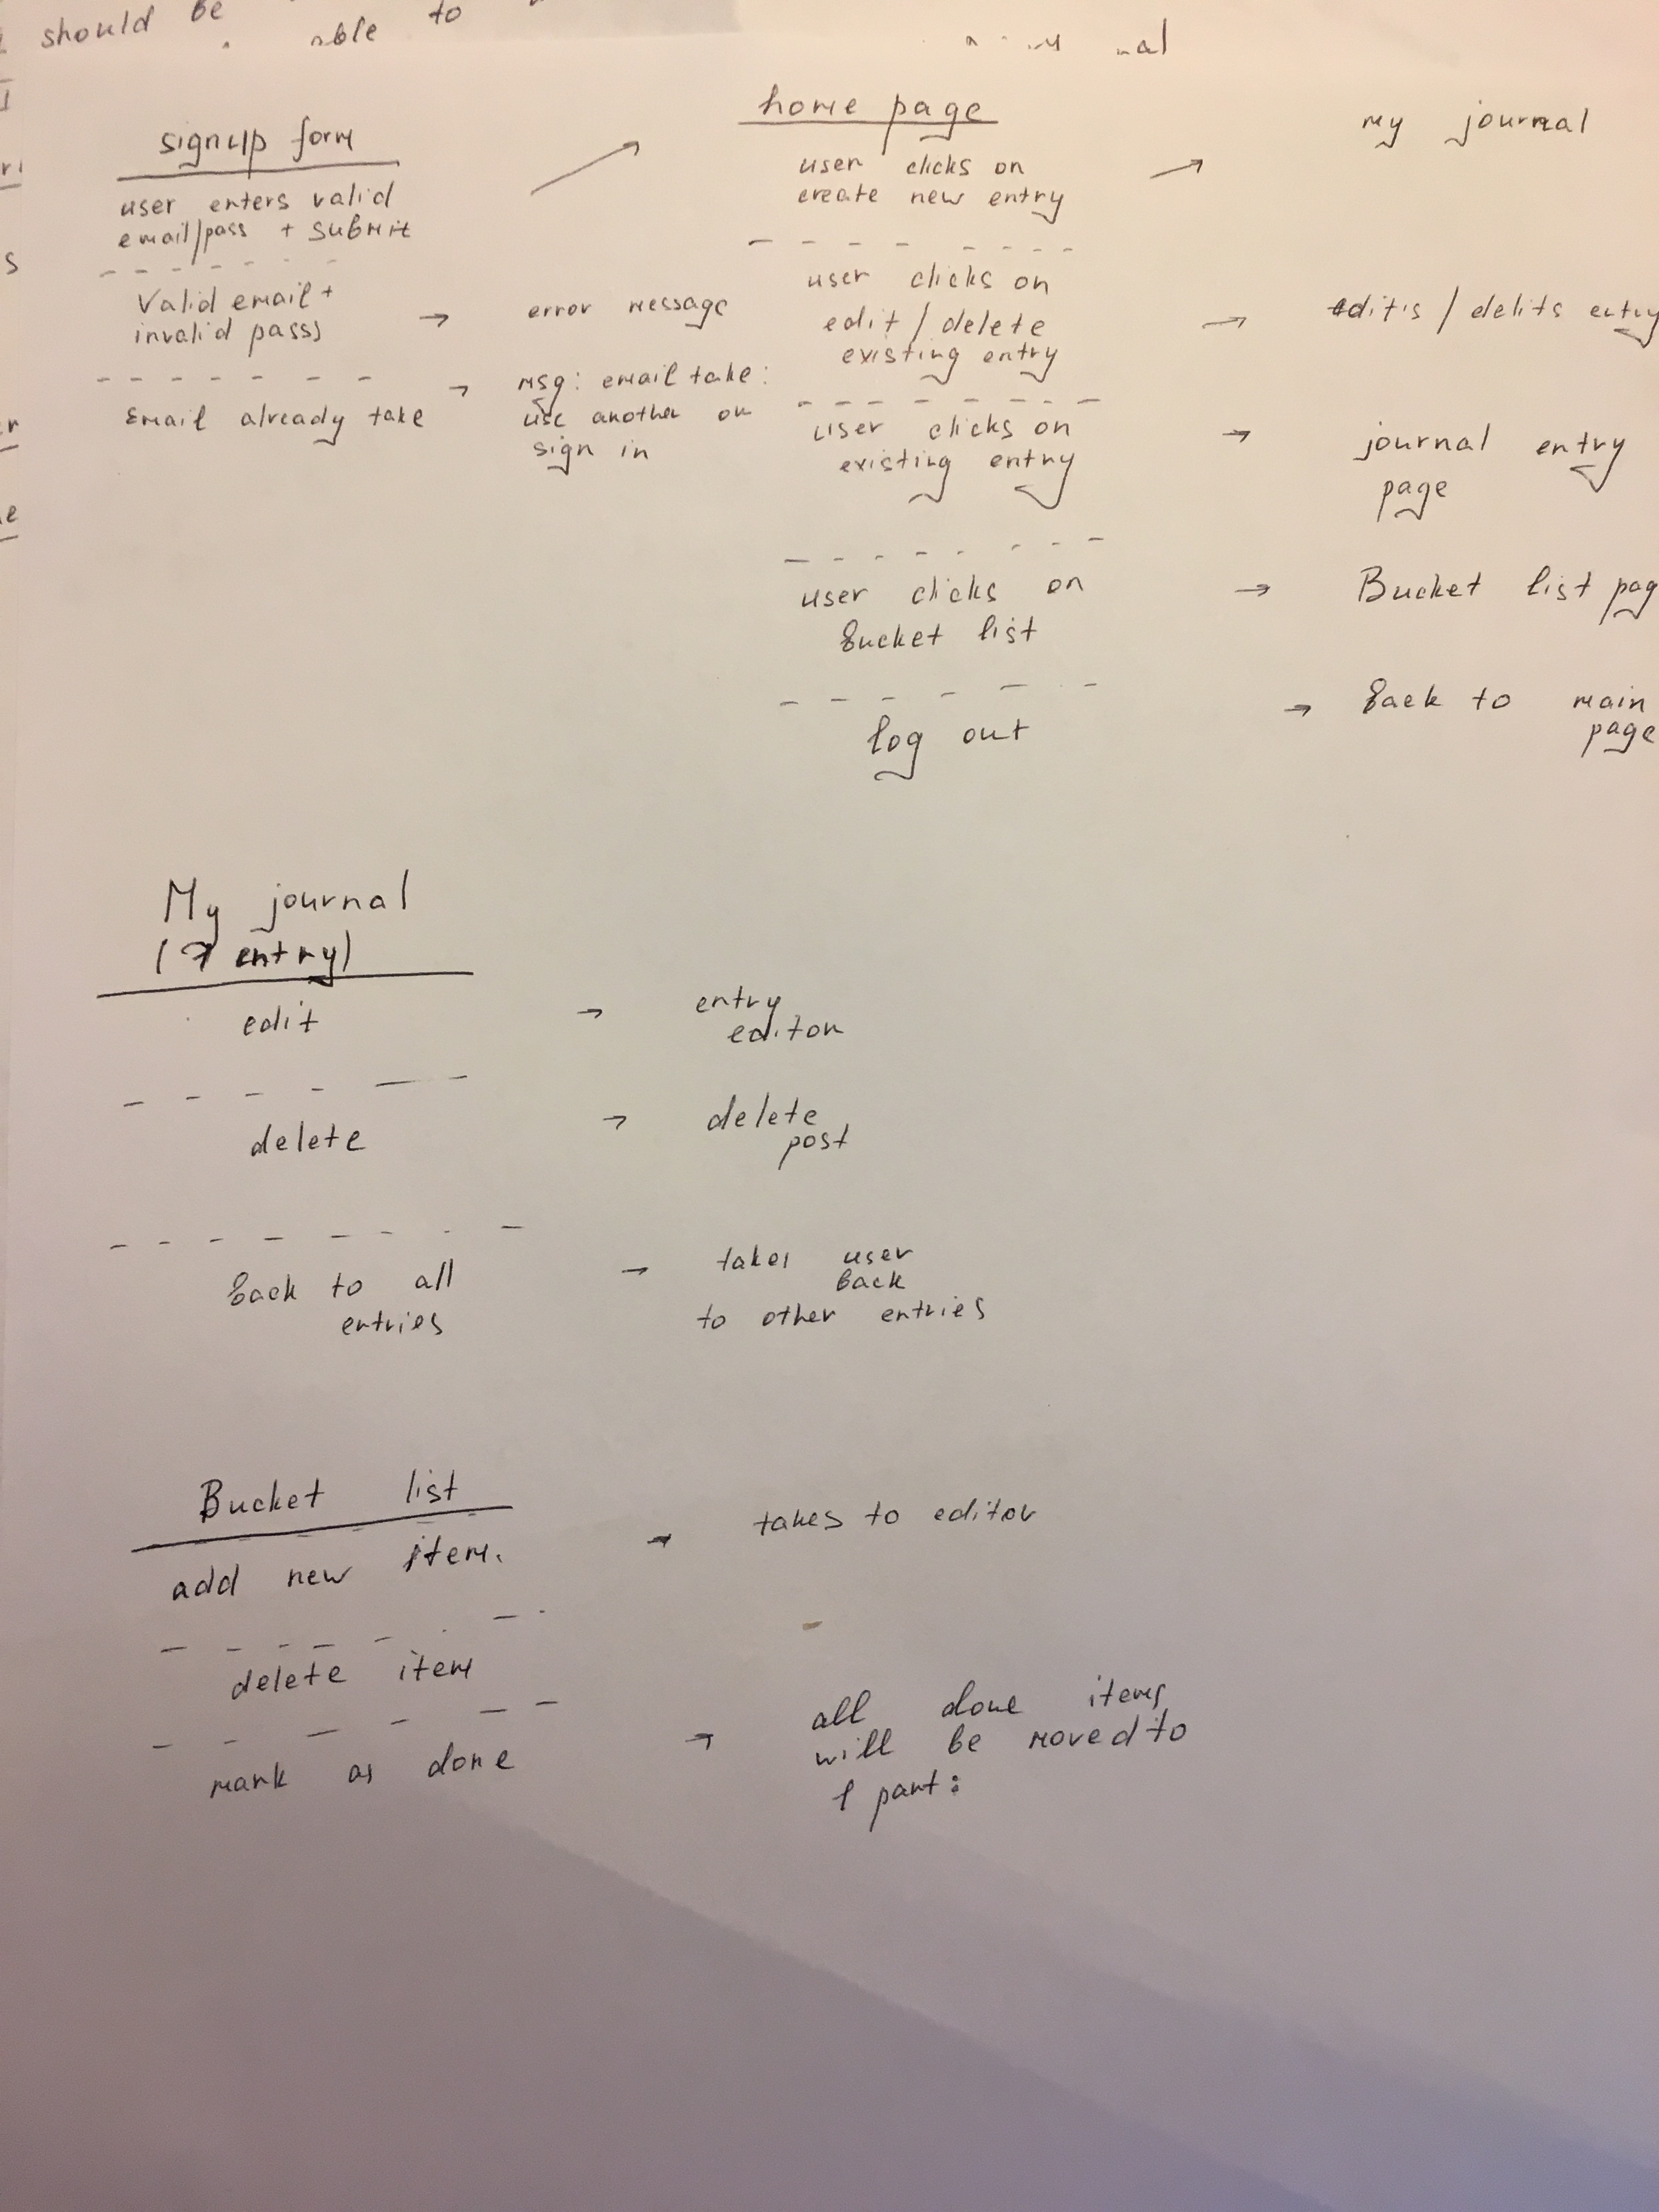 should be
able to
signup form
user enters valid
email/pass + submit
Valid email +
invalid pass)
→ error message
Email already take
→ msg: email take:
use another or
sign in
home page
user clicks on
create new entry
→ my journal
user clicks on
edit / delete
existing entry
→ edit's / delits entry
user clicks on
existing entry
→ journal entry
page
user clicks on
bucket list
→ Bucket list pag
log out
→ back to main
page
My journal
(1 entry)
edit
→ entry
editor
delete
→ delete
post
back to all
entries
→ takes user
back
to other entries
Bucket list
add new item.
→ takes to editor
delete item
mark as done
→ all done items
will be moved to
1 part: